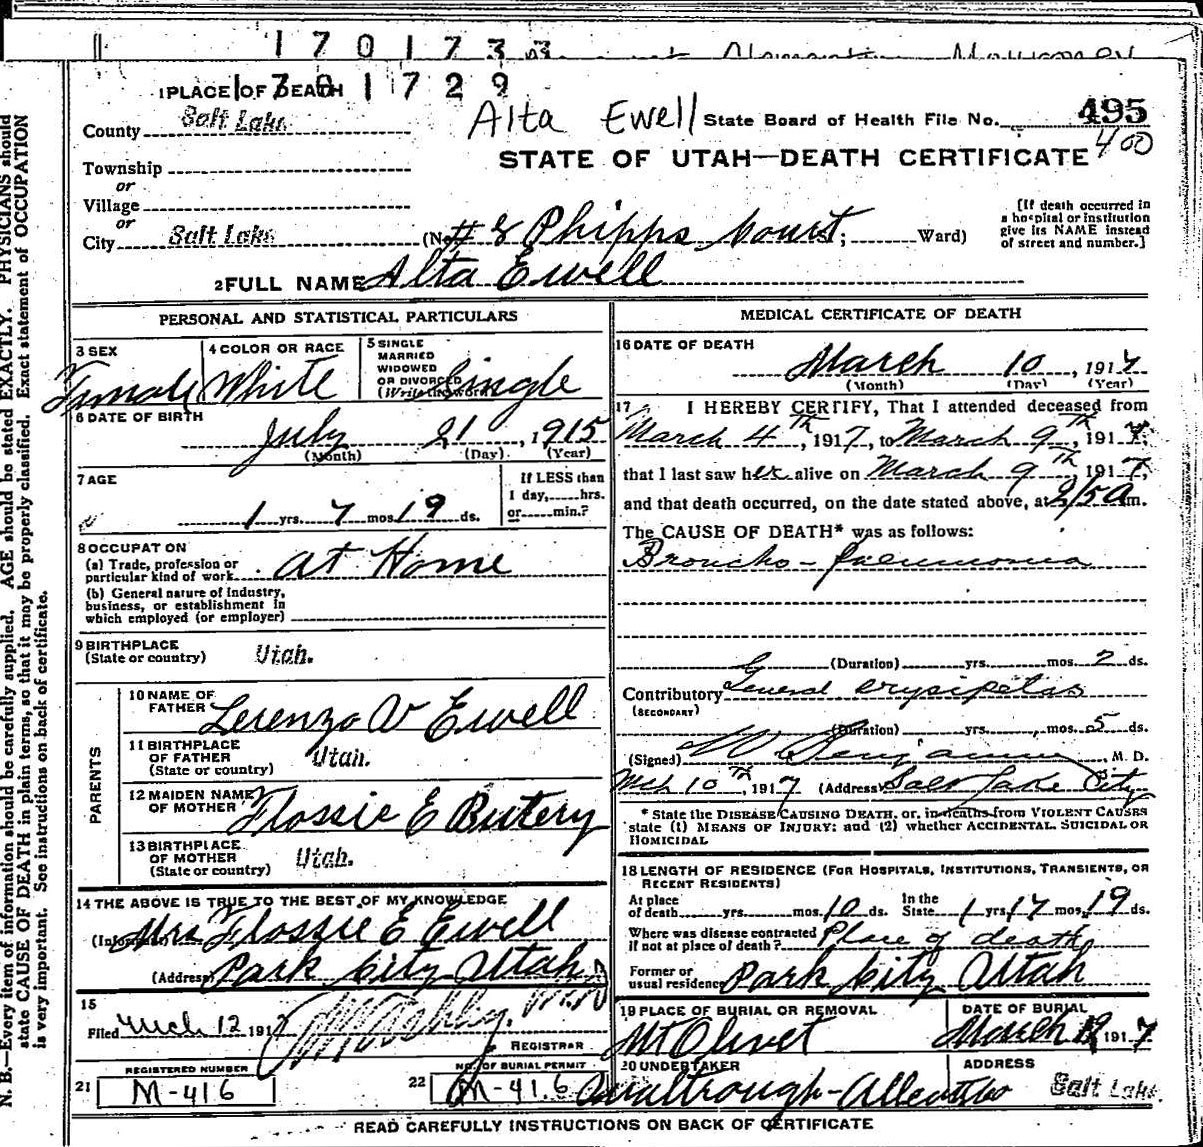 170173
1 PLACE OF DEATH
1701729
County Salt Lake
Alta Ewell
State Board of Health File No. 495
400
STATE OF UTAH—DEATH CERTIFICATE
Township
or
Village
or
City Salt Lake (No. # 8 Phipps Court; Ward)
[If death occurred in
a hospital or institution
give its NAME instead
of street and number.]
2 FULL NAME Alta Ewell
PERSONAL AND STATISTICAL PARTICULARS
3 SEX
Female
4 COLOR OR RACE
White
5 SINGLE
MARRIED
WIDOWED
OR DIVORCED
(Write the word)
Single
6 DATE OF BIRTH
July 21, 1915
(Month) (Day) (Year)
7 AGE
1 yrs. 7 mos. 19 ds.
If LESS than
1 day, hrs.
or min.?
8 OCCUPATION
(a) Trade, profession or
particular kind of work At Home
(b) General nature of Industry,
business, or establishment in
which employed (or employer)
9 BIRTHPLACE
(State or country) Utah.
PARENTS
10 NAME OF
FATHER Lorenzo V Ewell
11 BIRTHPLACE
OF FATHER
(State or country) Utah.
12 MAIDEN NAME
OF MOTHER Flossie E Butery
13 BIRTHPLACE
OF MOTHER
(State or country) Utah.
14 THE ABOVE IS TRUE TO THE BEST OF MY KNOWLEDGE
(Informant) Mrs Flossie E Ewell
(Address) Park City Utah
15
Filed Mch 12 1917
REGISTRAR
REGISTERED NUMBER
21 M-416
NO. OF BURIAL PERMIT
22 M-416
MEDICAL CERTIFICATE OF DEATH
16 DATE OF DEATH
March 10, 1917
(Month) (Day) (Year)
17 I HEREBY CERTIFY, That I attended deceased from
March 4th, 1917, to March 9th, 1917,
that I last saw her alive on March 9th, 1917,
and that death occurred, on the date stated above, at 2/50 m.
The CAUSE OF DEATH* was as follows:
Broncho-pneumonia
(Duration) yrs. mos. 2 ds.
Contributory General erysipelas
(SECONDARY)
(Duration) yrs. mos. 5 ds.
(Signed) W Benjamin M. D.
Mch 10th, 1917 (Address) Salt Lake City
* State the DISEASE CAUSING DEATH, or, in deaths from VIOLENT CAUSES
state (1) MEANS OF INJURY; and (2) whether ACCIDENTAL, SUICIDAL OR
HOMICIDAL
18 LENGTH OF RESIDENCE (FOR HOSPITALS, INSTITUTIONS, TRANSIENTS, OR
RECENT RESIDENTS)
At place
of death yrs. mos. 10 ds. In the
State 1 yrs. 7 mos. 19 ds.
Where was disease contracted
if not at place of death? Place of death
Former or
usual residence Park City Utah
19 PLACE OF BURIAL OR REMOVAL
Mt Olivet
DATE OF BURIAL
March 1917
20 UNDERTAKER
ADDRESS
Salt Lake
READ CAREFULLY INSTRUCTIONS ON BACK OF CERTIFICATE
N. B.—Every item of information should be carefully supplied. AGE should be stated EXACTLY. PHYSICIANS should
state CAUSE OF DEATH in plain terms, so that it may be properly classified. Exact statement of OCCUPATION
is very important. See instructions on back of certificate.